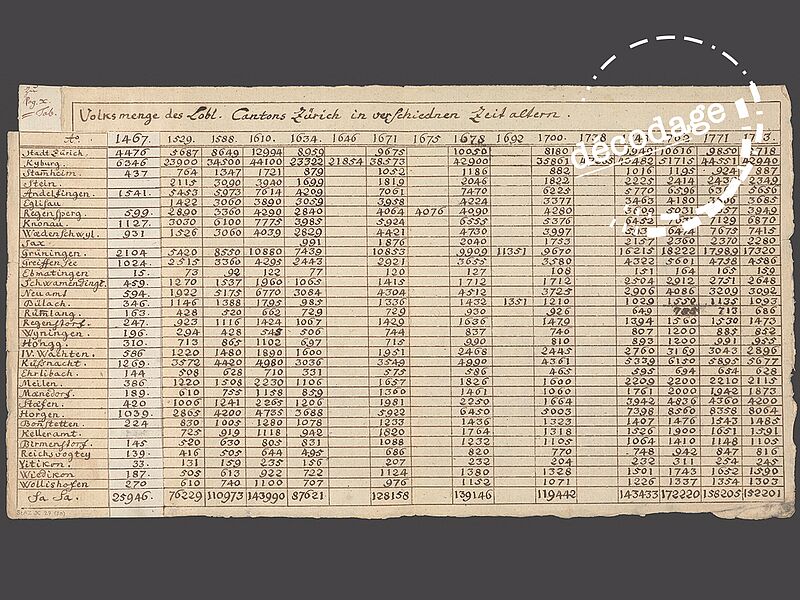 Zu
Pag. x
Tab.
décodage
Volksmenge des Lobl. Cantons Zürich in verschiednen Zeit altern.
Ao 1467. 1529. 1588. 1610. 1634. 1646 1671 1675 1678 1692 1700. 1738 1771
Stadt Zürich. 4476 5687 8649 12994 8959 9675 10050 8180 10616 9850
Kyburg. 6346 23900 34500 44100 23322 21854 38573 42900 35861 43482 51715 44551 42940
Stamheim. 437 764 1347 1721 879 1052 1186 882 1016 1195 924 887
Stein. 2115 3090 3940 1699 1819 2046 1822 2225 2414 2349
Andelfingen. 1541. 5453 5973 7614 4209 7061 7470 6225 5770 6596 5655
Eglisau 1422 3060 3890 3059 3958 4224 3377 3463 4180
Regensperg. 599. 2890 3360 4290 2840 4064 4076 4090 4280 3949
Knonau. 1127. 3030 6100 7775 3985 5924 6555 5376 6452 6870
Wædenschwyl. 931 1526 3060 4039 2829 4421 4730 3997 6474 7675 7415
Sax. 991 1876 2040 1753 2157 2360 2370 2280
Grüningen. 2104 5420 8550 10880 7439 10853 9909 11351 9670 16215 18222 17989 17320
Greiffen See 1024. 2515 3360 4295 2443 2921 3655 3580 4332 5601 4758 4586
Ebmatingen 15. 73 92 122 77 120 127 108 151 164 165 159
Schwamendingt. 459. 1270 1537 1960 1065 1415 1712 1712 2504 2912 2751 2648
Neuamt 594. 1922 5175 6770 3084 4304 4512 3725 2906 4086 3209 3092
Bülach. 346. 1146 1388 1795 985 1336 1432 1351 1210 1029 1550 1135 1093
Rümlang. 163. 428 520 662 729 729 930 926 649 713 686
Regenstorf. 247. 923 1116 1424 1067 1429 1636 1479 1394 1560 1530 1473
Wyningen. 196. 294 428 548 506 744 837 740 807 1200 885 852
Höngg. 310. 713 865 1102 697 715 990 810 893 1200 991 955
IV. Wachten. 586 1220 1480 1890 1600 1951 2468 2445 2760 3169 3043 2896
Küßnacht. 1269. 3572 4420 4980 3036 3549 4990 4361 5339 6150 5895 5677
Ehrlibach. 144 508 628 710 331 575 586 465 595 694 654 628
Meilen. 386 1220 1508 2230 1106 1657 1826 1600 2209 2200 2210 2115
Mænedorf. 189. 610 755 1158 859 1360 1461 1060 1761 2000 1942 1873
Stæfen. 420 1006 1241 2265 1206 1981 2250 1664 3942 4836 4360 4200
Horgen. 1039. 2865 4200 4735 3688 5922 6450 5003 7398 8560 8358 8064
Bonstetten. 224 830 1005 1280 1078 1233 1436 1323 1407 1476 1543 1485
Kelleramt. 725 919 1118 942 1820 1764 1318 1526 1900 1651 1591
Birmenstorf. 145 520 630 805 831 1088 1232 1105 1064 1410 1148 1105
Reichsvogtey 139. 416 505 644 495 686 820 770 748 942 847 816
Vitikon. 33. 131 159 235 156 207 232 204 232 311 254 245
Wiedikon. 187. 505 613 922 722 1124 1380 1328 1501 1743 1652 1590
Wollishofen 270 610 740 1100 707 976 1152 1071 1226 1337 1354 1303
Sa Sa. 25946. 76229 110973 143990 87621 128158 139146 119442 143433 172220 158205 152201